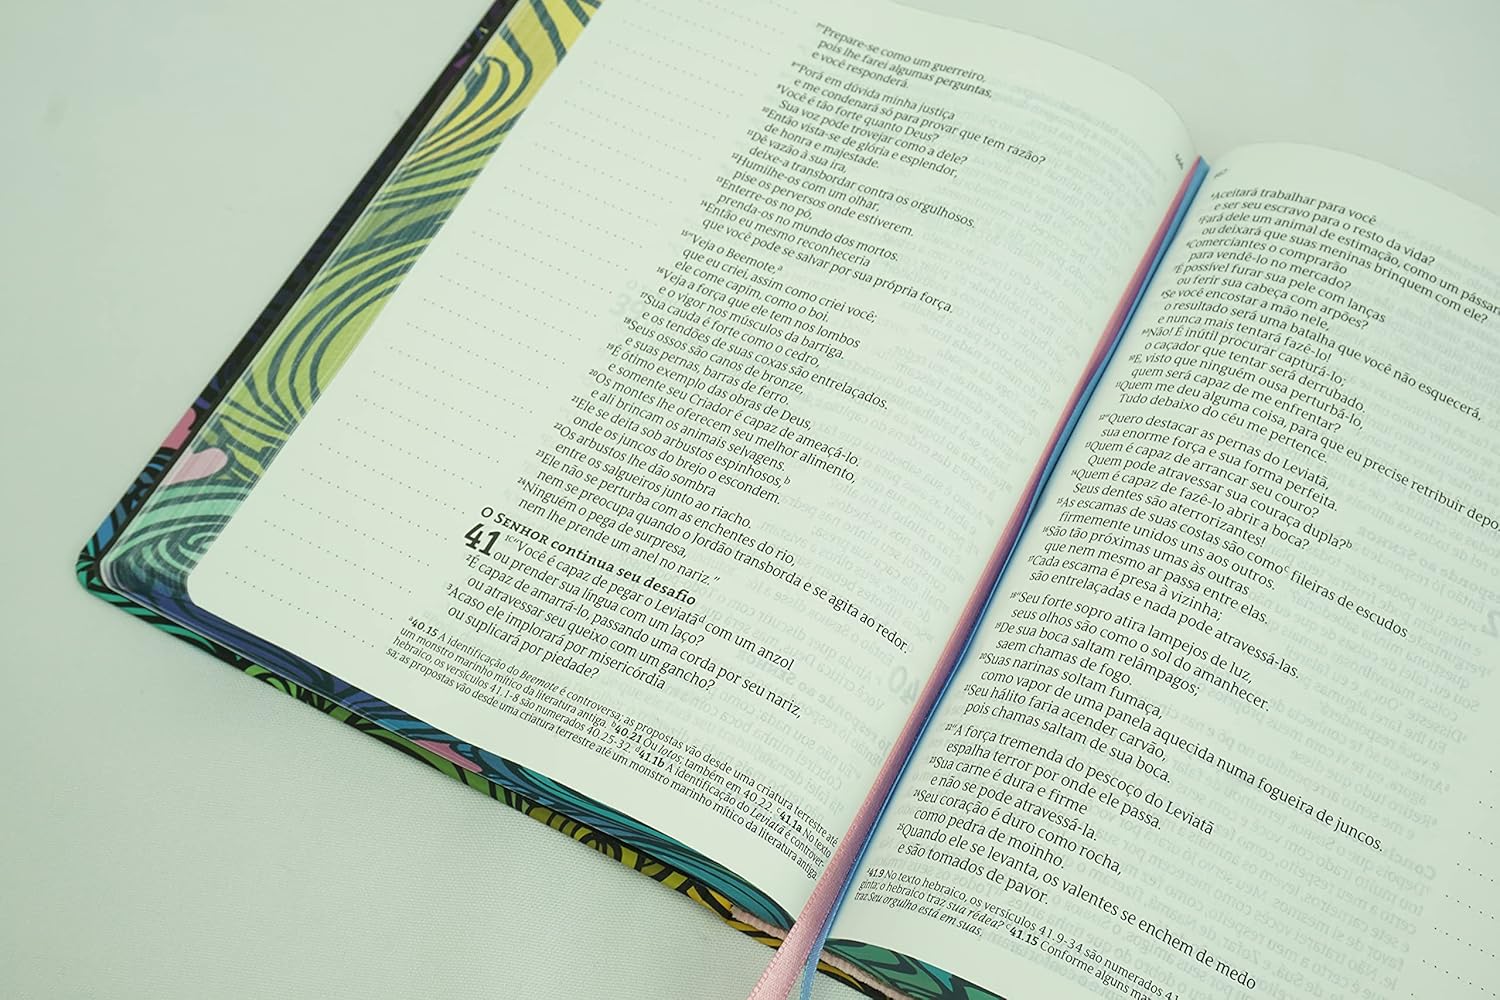 ⁷"Prepare-se como um guerreiro,
pois lhe farei algumas perguntas,
e você responderá.
⁸"Porá em dúvida minha justiça
e me condenará só para provar que tem razão?
⁹Você é tão forte quanto Deus?
Sua voz pode trovejar como a dele?
¹⁰Então vista-se de glória e esplendor,
de honra e majestade.
¹¹Dê vazão à sua ira,
deixe-a transbordar contra os orgulhosos.
¹²Humilhe-os com um olhar,
pise os perversos onde estiverem.
¹³Enterre-os no pó,
prenda-os no mundo dos mortos.
¹⁴Então eu mesmo reconheceria
que você pode se salvar por sua própria força.
¹⁵"Veja o Beemote,ᵃ
que eu criei, assim como criei você;
ele come capim, como o boi.
¹⁶Veja a força que ele tem nos lombos
e o vigor nos músculos da barriga.
¹⁷Sua cauda é forte como o cedro,
e os tendões de suas coxas são entrelaçados.
¹⁸Seus ossos são canos de bronze,
e suas pernas, barras de ferro.
¹⁹É ótimo exemplo das obras de Deus,
e somente seu Criador é capaz de ameaçá-lo.
²⁰Os montes lhe oferecem seu melhor alimento,
e ali brincam os animais selvagens.
²¹Ele se deita sob arbustos espinhosos,ᵇ
onde os juncos do brejo o escondem.
²²Os arbustos lhe dão sombra
entre os salgueiros junto ao riacho.
²³Ele não se perturba com as enchentes do rio,
nem se preocupa quando o Jordão transborda e se agita ao redor.
²⁴Ninguém o pega de surpresa,
nem lhe prende um anel no nariz."
O SENHOR continua seu desafio
41 ¹ᶜ"Você é capaz de pegar o Leviatãᵈ com um anzol
ou prender sua língua com um laço?
²É capaz de amarrá-lo, passando uma corda por seu nariz,
ou atravessar seu queixo com um gancho?
³Acaso ele implorará por misericórdia
ou suplicará por piedade?
ᵃ40.15 A identificação do Beemote é controversa, as propostas vão desde uma criatura terrestre até
um monstro marinho mítico da literatura antiga. ᵇ40.21 Ou lotos; também em 40.22. ᶜ41.1a No texto
hebraico, os versículos 41.1-8 são numerados 40.25-32. ᵈ41.1b A identificação do Leviatã é controver-
sa; as propostas vão desde uma criatura terrestre até um monstro marinho mítico da literatura antiga.
⁴Aceitará trabalhar para você
e ser seu escravo para o resto da vida?
⁵Fará dele um animal de estimação, como um pássaro
ou deixará que suas meninas brinquem com ele?
⁶Comerciantes o comprarão
para vendê-lo no mercado?
⁷É possível furar sua pele com lanças
ou ferir sua cabeça com arpões?
⁸Se você encostar a mão nele,
o resultado será uma batalha que você não esquecerá,
e nunca mais tentará fazê-lo!
⁹ᵃNão! É inútil procurar capturá-lo;
o caçador que tentar será derrubado.
¹⁰E, visto que ninguém ousa perturbá-lo,
quem será capaz de me enfrentar?
¹¹Quem me deu alguma coisa, para que eu precise retribuir depo
Tudo debaixo do céu me pertence.
¹²"Quero destacar as pernas do Leviatã,
sua enorme força e sua forma perfeita.
¹³Quem é capaz de arrancar seu couro?
Quem pode atravessar sua couraça dupla?ᵇ
¹⁴Quem é capaz de fazê-lo abrir a boca?
Seus dentes são aterrorizantes!
¹⁵As escamas de suas costas são comoᶜ fileiras de escudos
firmemente unidos uns aos outros.
¹⁶São tão próximas umas às outras
que nem mesmo ar passa entre elas.
¹⁷Cada escama é presa à vizinha;
são entrelaçadas e nada pode atravessá-las.
¹⁸"Seu forte sopro atira lampejos de luz,
seus olhos são como o sol do amanhecer.
¹⁹De sua boca saltam relâmpagos;
saem chamas de fogo.
²⁰Suas narinas soltam fumaça,
como vapor de uma panela aquecida numa fogueira de juncos.
²¹Seu hálito faria acender carvão,
pois chamas saltam de sua boca.
²²"A força tremenda do pescoço do Leviatã
espalha terror por onde ele passa.
²³Sua carne é dura e firme
e não se pode atravessá-la.
²⁴Seu coração é duro como rocha,
como pedra de moinho.
²⁵Quando ele se levanta, os valentes se enchem de medo
e são tomados de pavor.
ᵃ41.9 No texto hebraico, os versículos 41.9-34 são numerados 41.
ginta; o hebraico traz sua rédea? ᶜ41.15 Conforme alguns ma
traz Seu orgulho está em suas.